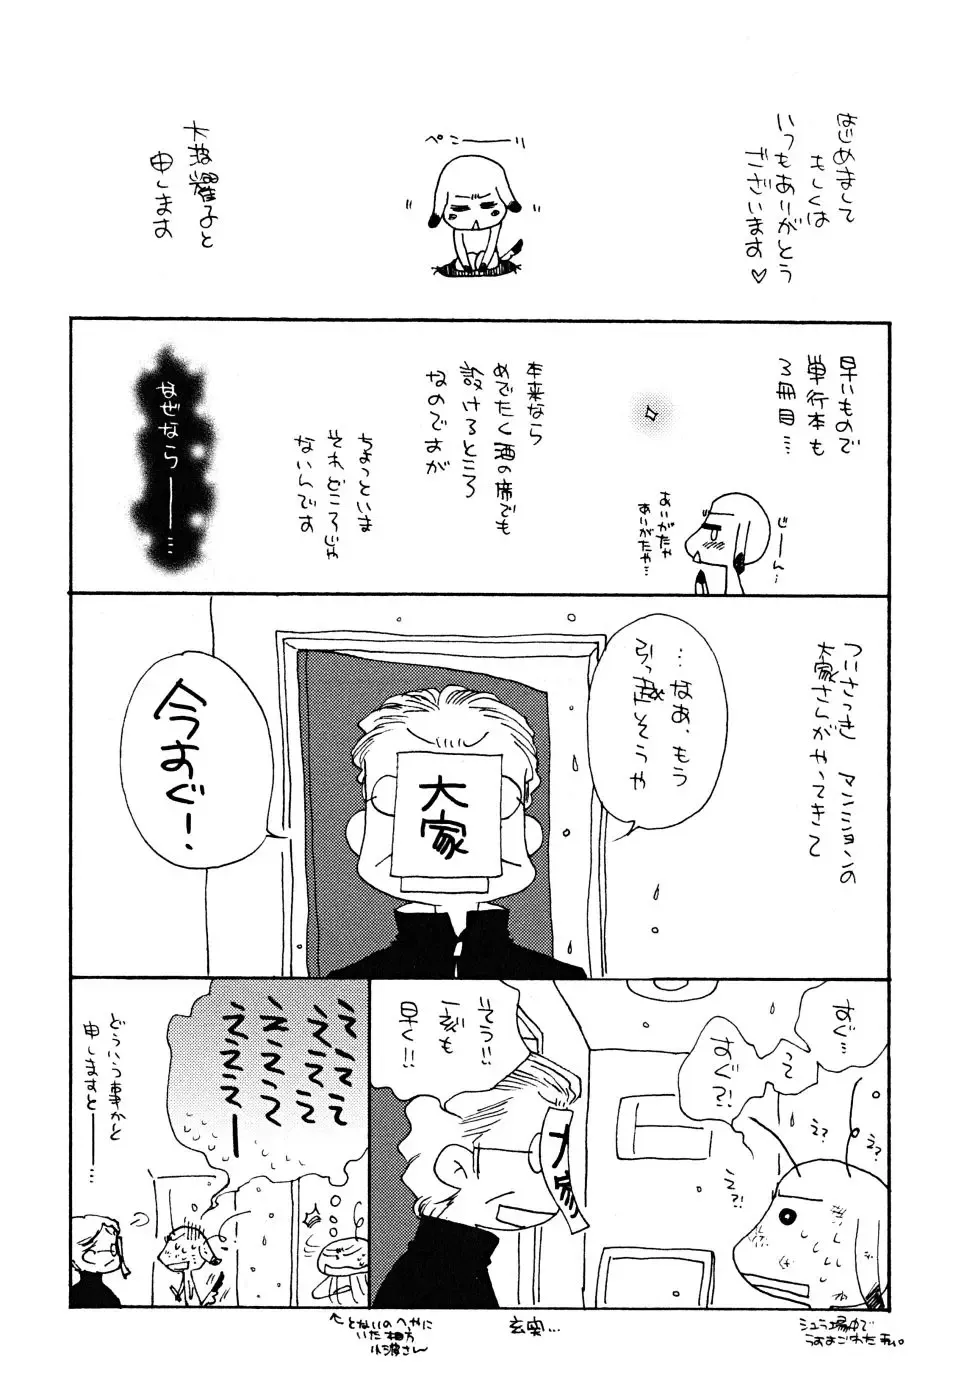 はじめまして
もしくは
いつもありがとう
ございます♡
ペこーーーり
大波耀子と
申します
早いもので
単行本も
3冊目…
じーん…
ありがたや
ありがたや…
本来なら
めでたく酒の席でも
設けるところ
なのですが
ちょっといま
それどころじゃ
ないんです
なぜなら――…
ついさっき マンションの
大家さんがやってきて
…なあ、もう
引っ越そうや
大家
今すぐ!
すぐ…
って
すぐ?!
え?
え?
え?!
シュラ場中で
うすよごれた私。
そう!!
一刻も
早く!!
大家
玄関…
ええええ
ええええ
ええええ
えええー
どういう事かと
申しますと――…
↑となりのへやに
いた相方
小波さん